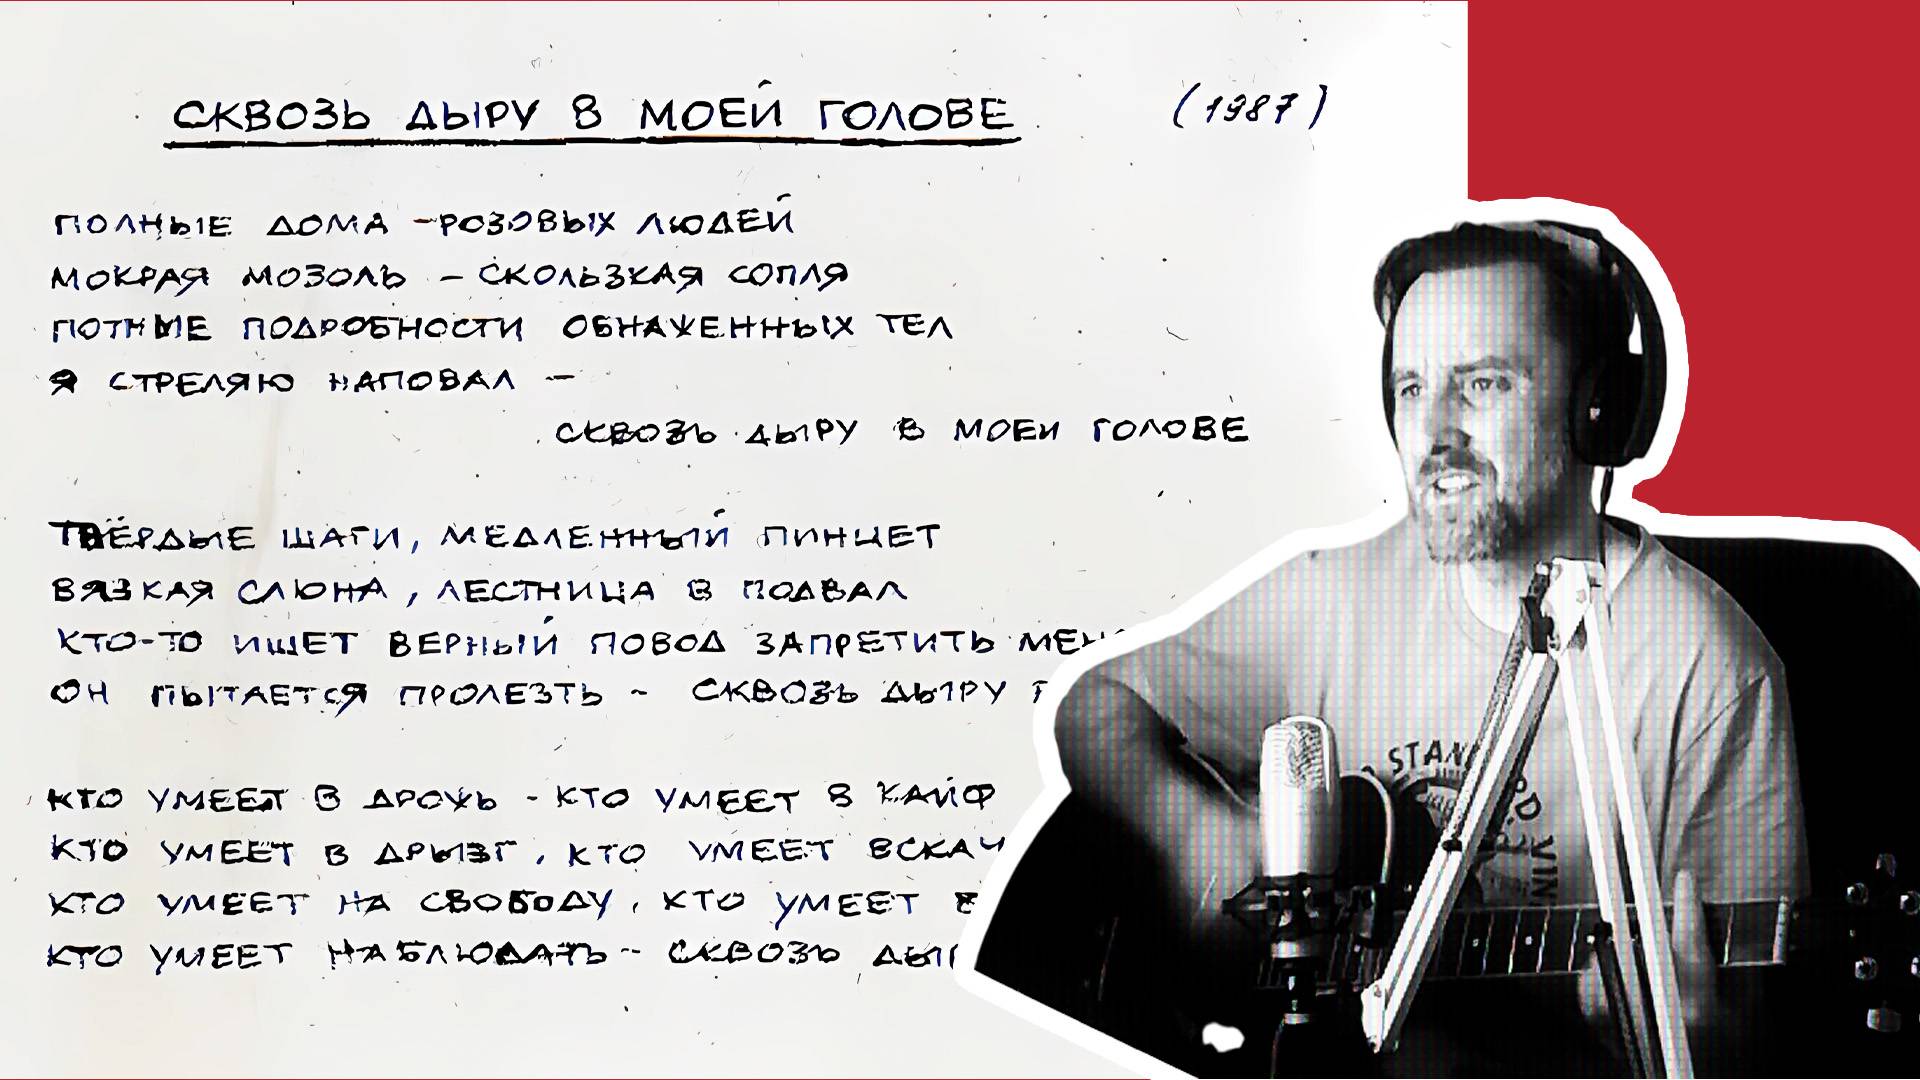 СКВОЗЬ ДЫРУ В МОЕЙ ГОЛОВЕ (1987)
ПОЛНЫЕ ДОМА – РОЗОВЫХ ЛЮДЕЙ
МОКРАЯ МОЗОЛЬ – СКОЛЬЗКАЯ СОПЛЯ
ПОТНЫЕ ПОДРОБНОСТИ ОБНАЖЕННЫХ ТЕЛ
Я СТРЕЛЯЮ НАПОВАЛ –
СКВОЗЬ ДЫРУ В МОЕИ ГОЛОВЕ
ТВЁРДЫЕ ШАГИ, МЕДЛЕННЫЙ ПИНЦЕТ
ВЯЗКАЯ СЛЮНА, ЛЕСТНИЦА В ПОДВАЛ
КТО-ТО ИЩЕТ ВЕРНЫЙ ПОВОД ЗАПРЕТИТЬ
ОН ПЫТАЕТСЯ ПРОЛЕЗТЬ – СКВОЗЬ ДЫРУ
КТО УМЕЕТ В ДРОЖЬ - КТО УМЕЕТ В КАЙФ
КТО УМЕЕТ В ДРЫЗГ, КТО УМЕЕТ ВСКАЧ
КТО УМЕЕТ НА СВОБОДУ, КТО УМЕЕТ
КТО УМЕЕТ НАБЛЮДАТЬ – СКВОЗЬ
STAND